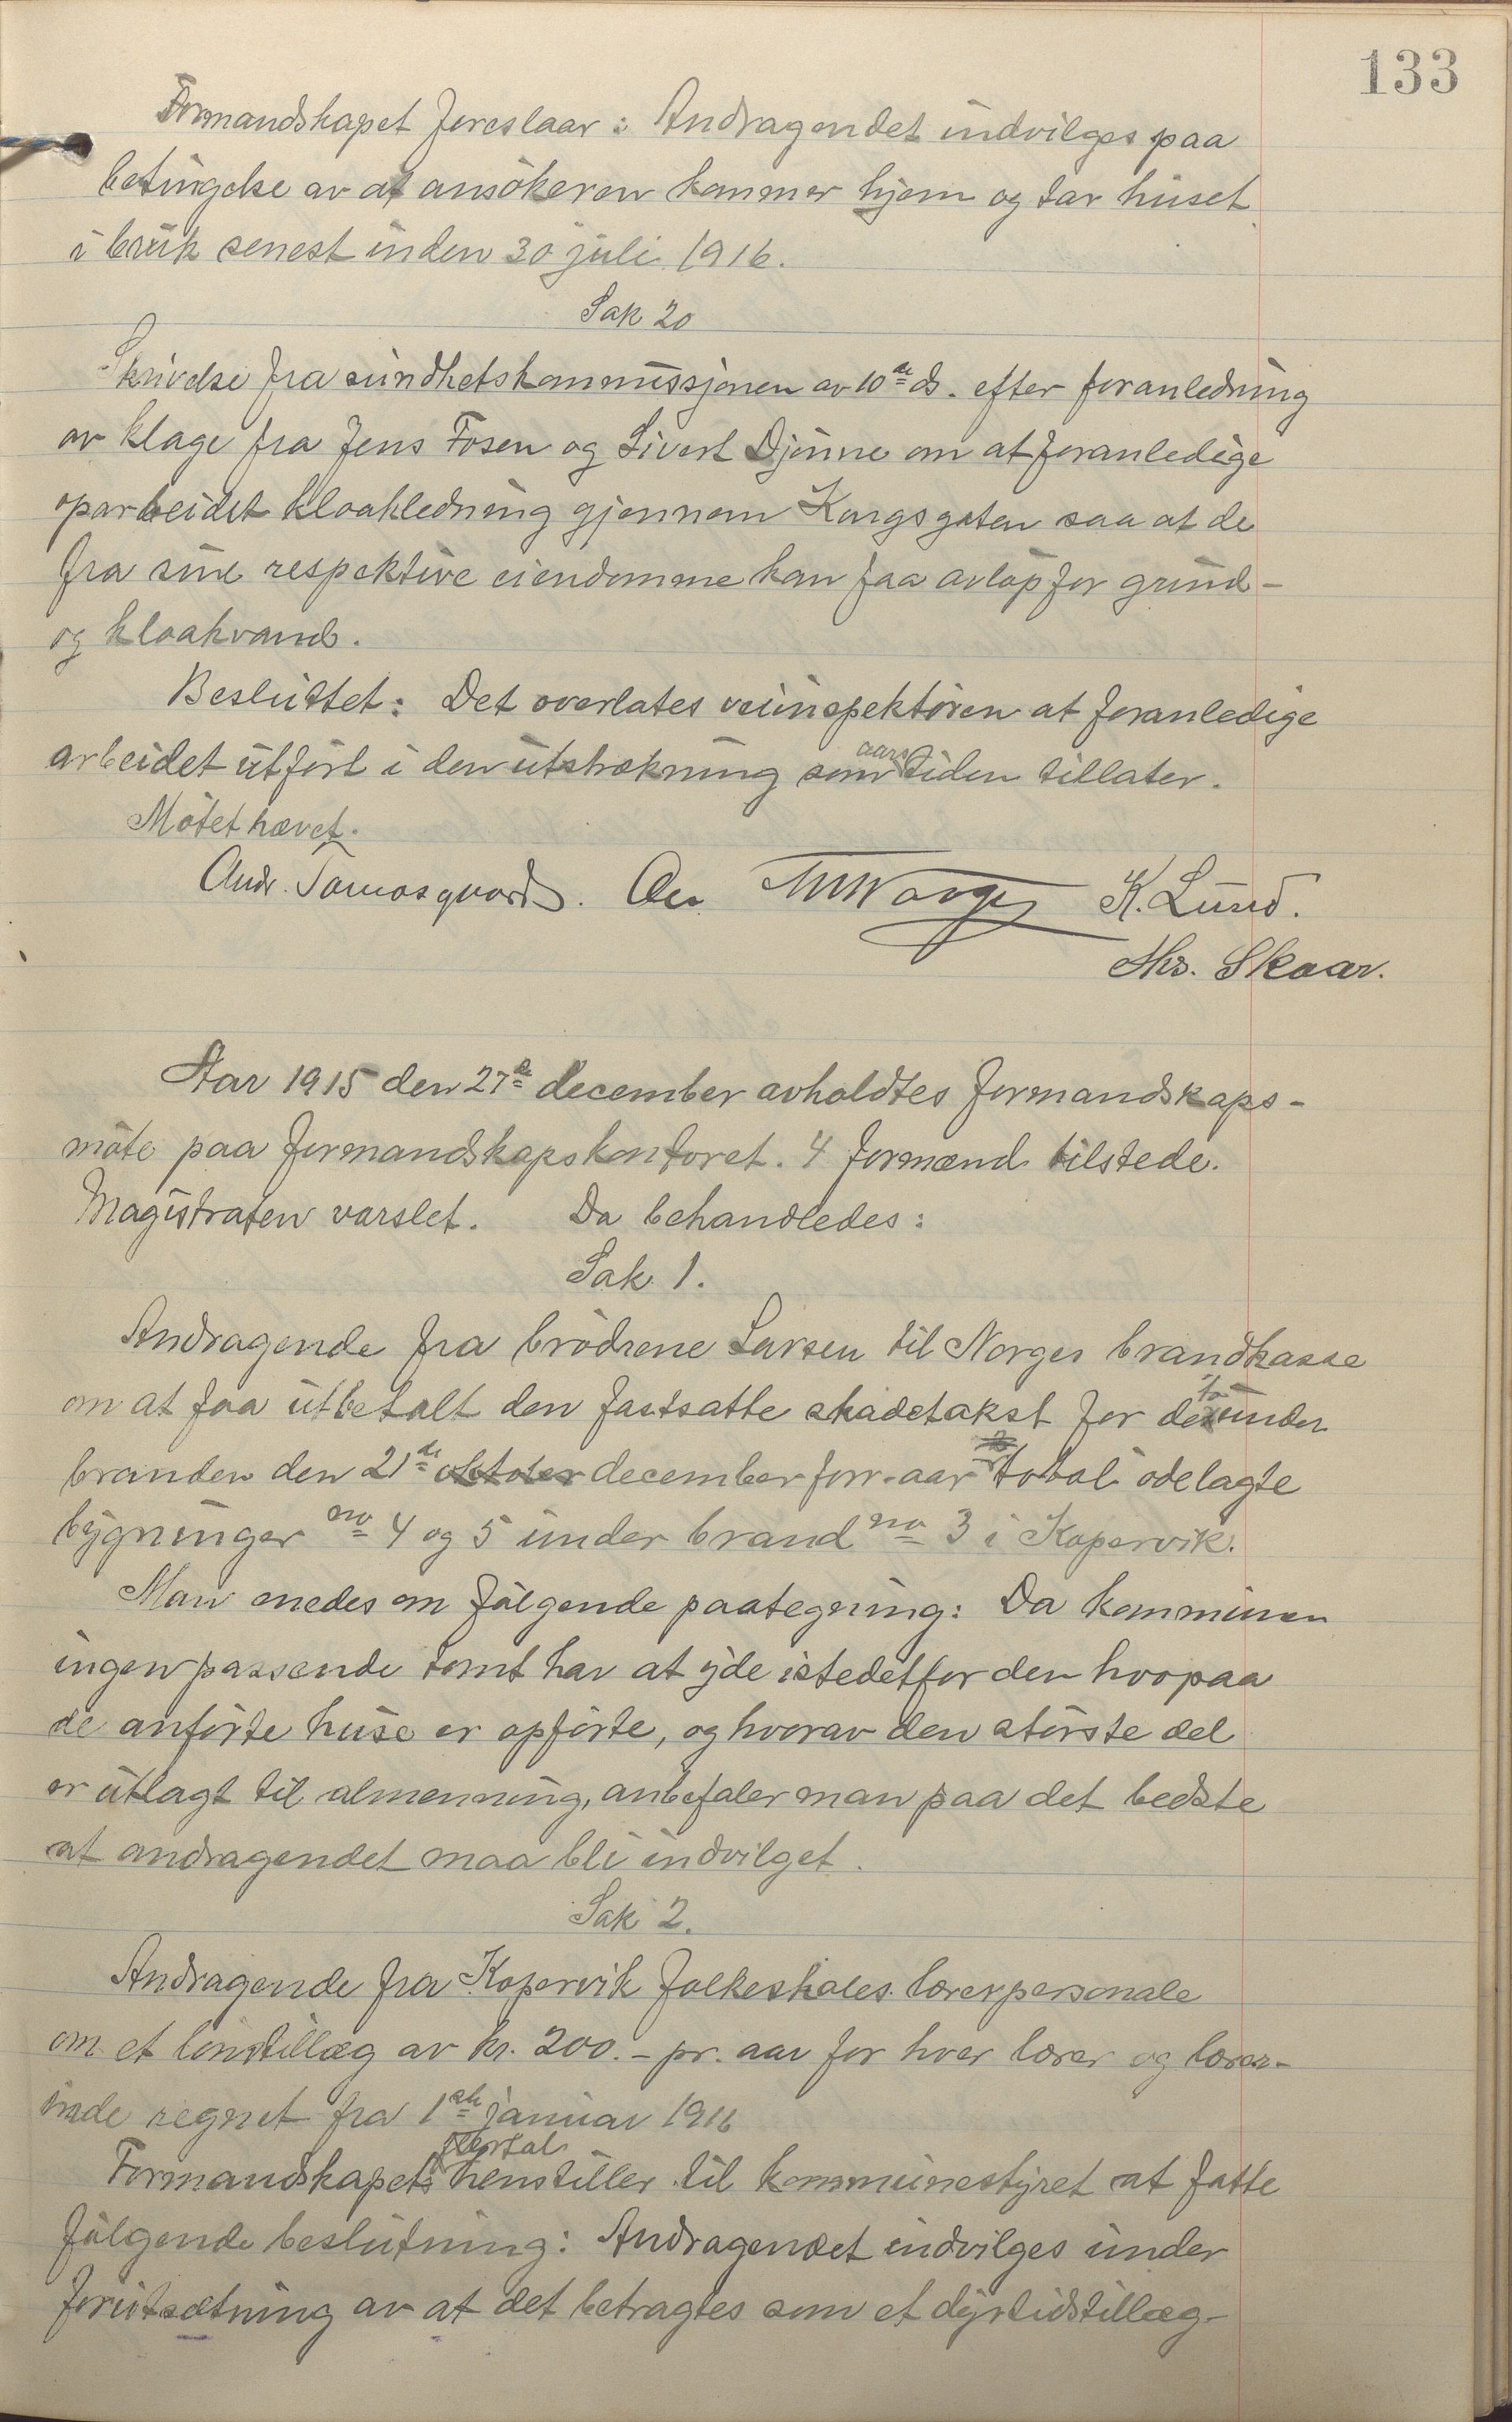 133
Formandskapet foreslaar: Andragendet indvilges paa
betingelse av at ansökeren kommer hjem og tar huset
i bruk senest inden 30 juli 1916.
Sak 20
Skrivelse fra sundhetskommissjonen av 10de ds. efter foranledning
av klage fra Jens Fosen og Sivert Djönne om at foranledige
oparbeidet kloakledning gjennem Kongsgaten saa at de
fra sine respektive eiendomme kan faa avlöp for grund-
og kloakvand.
Besluttet: Det overlates veiinspektören at foranledige
arbeidet utfört i den utstrækning som aarstiden tillater.
Mötet hævet.
K. Lund.
Chr. Skaar.
Aar 1915 den 27de december avholdtes formandskaps-
möte paa formandskapskontoret. 4 formænd tilstede.
Magistraten varslet. Da behandledes:
Sak 1.
Andragende fra brödrene Larsen til Norges brandkasse
om at faa utbetalt den fastsatte skadetakst for de to under
branden den 21de oktober december forr. aar total ödelagte
bygninger no 4 og 5 under brand no 3 i Kopervik.
Man enedes om fölgende paategning: Da kommunen
ingen passende tomt har at yde istedetfor den hvorpaa
de anförte huse er opförte, og hvorav den störste del
er utlagt til almenning, anbefaler man paa det bedste
at andragendet maa bli indvilget.
Sak 2.
Andragende fra Kopervik folkeskoles lærerpersonale
om et lönstillæg av kr. 200.- pr. aar for hver lærer og lærer-
inde regnet fra 1ste januar 1916
Formandskapets flertal henstiller til kommunestyret at fatte
fölgende beslutning: Andragendet indvilges under
forutsætning av at det betragtes som et dyrtidstillæg-